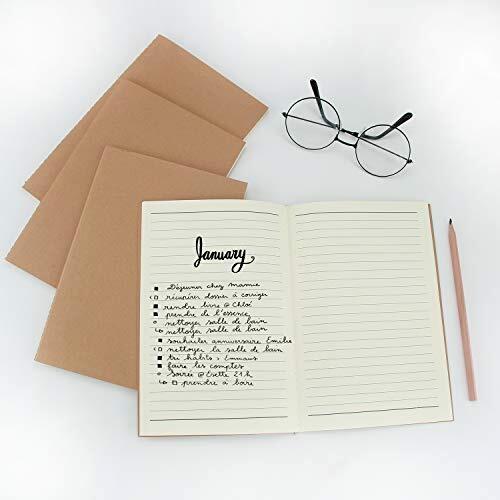 January
Déjeuner chez mamie
récupérer dossier à corriger
rendre livre @ Chloé
prendre de l'essence
nettoyer salle de bain
nettoyer salle de bain
souhaiter anniversaire Emilie
nettoyer la salle de bain
tri habits > Emmaus
faire les comptes
Soirée @ 21h
prendre à